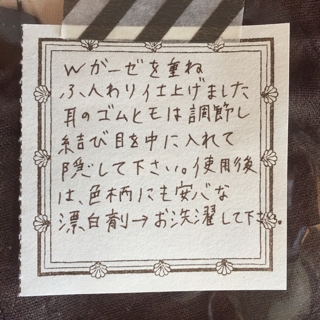 Wガーゼを重ね
ふんわり仕上げました
耳のゴムヒモは調節し
結び目を中に入れて
隠して下さい。使用後
は、色柄にも安心な
漂白剤→お洗濯して下さい。